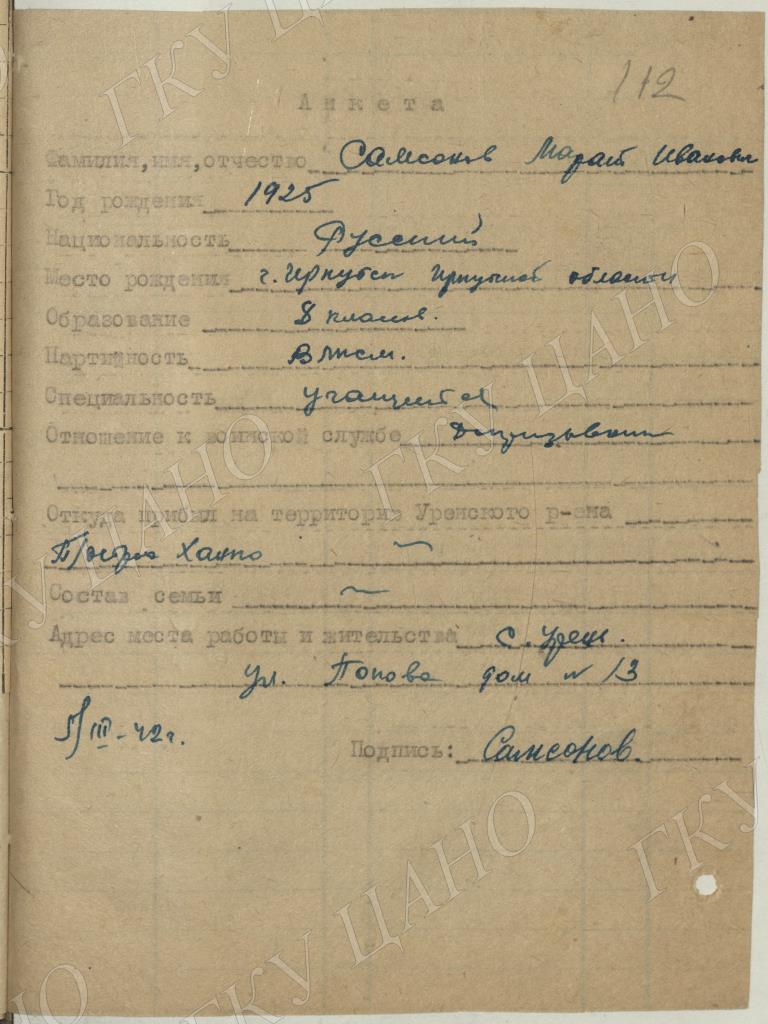 112
Анкета
Фамилия,имя,отчество Самсонов Марат Иванович
Год рождения 1925
Национальность Русский
Место рождения г. Иркутск Иркутской области
Образование 8 классов.
Партийность ВЛКСМ.
Специальность учащийся
Отношение к воинской службе Допризывник
Откуда прибыл на территорию Уренского р-она
П/остров Ханко
Состав семьи
Адрес места работы и жительства с. Урень.
ул. Попова дом № 13
5/III-42г.
Подпись: Самсонов.
ГКУ ЦАНО